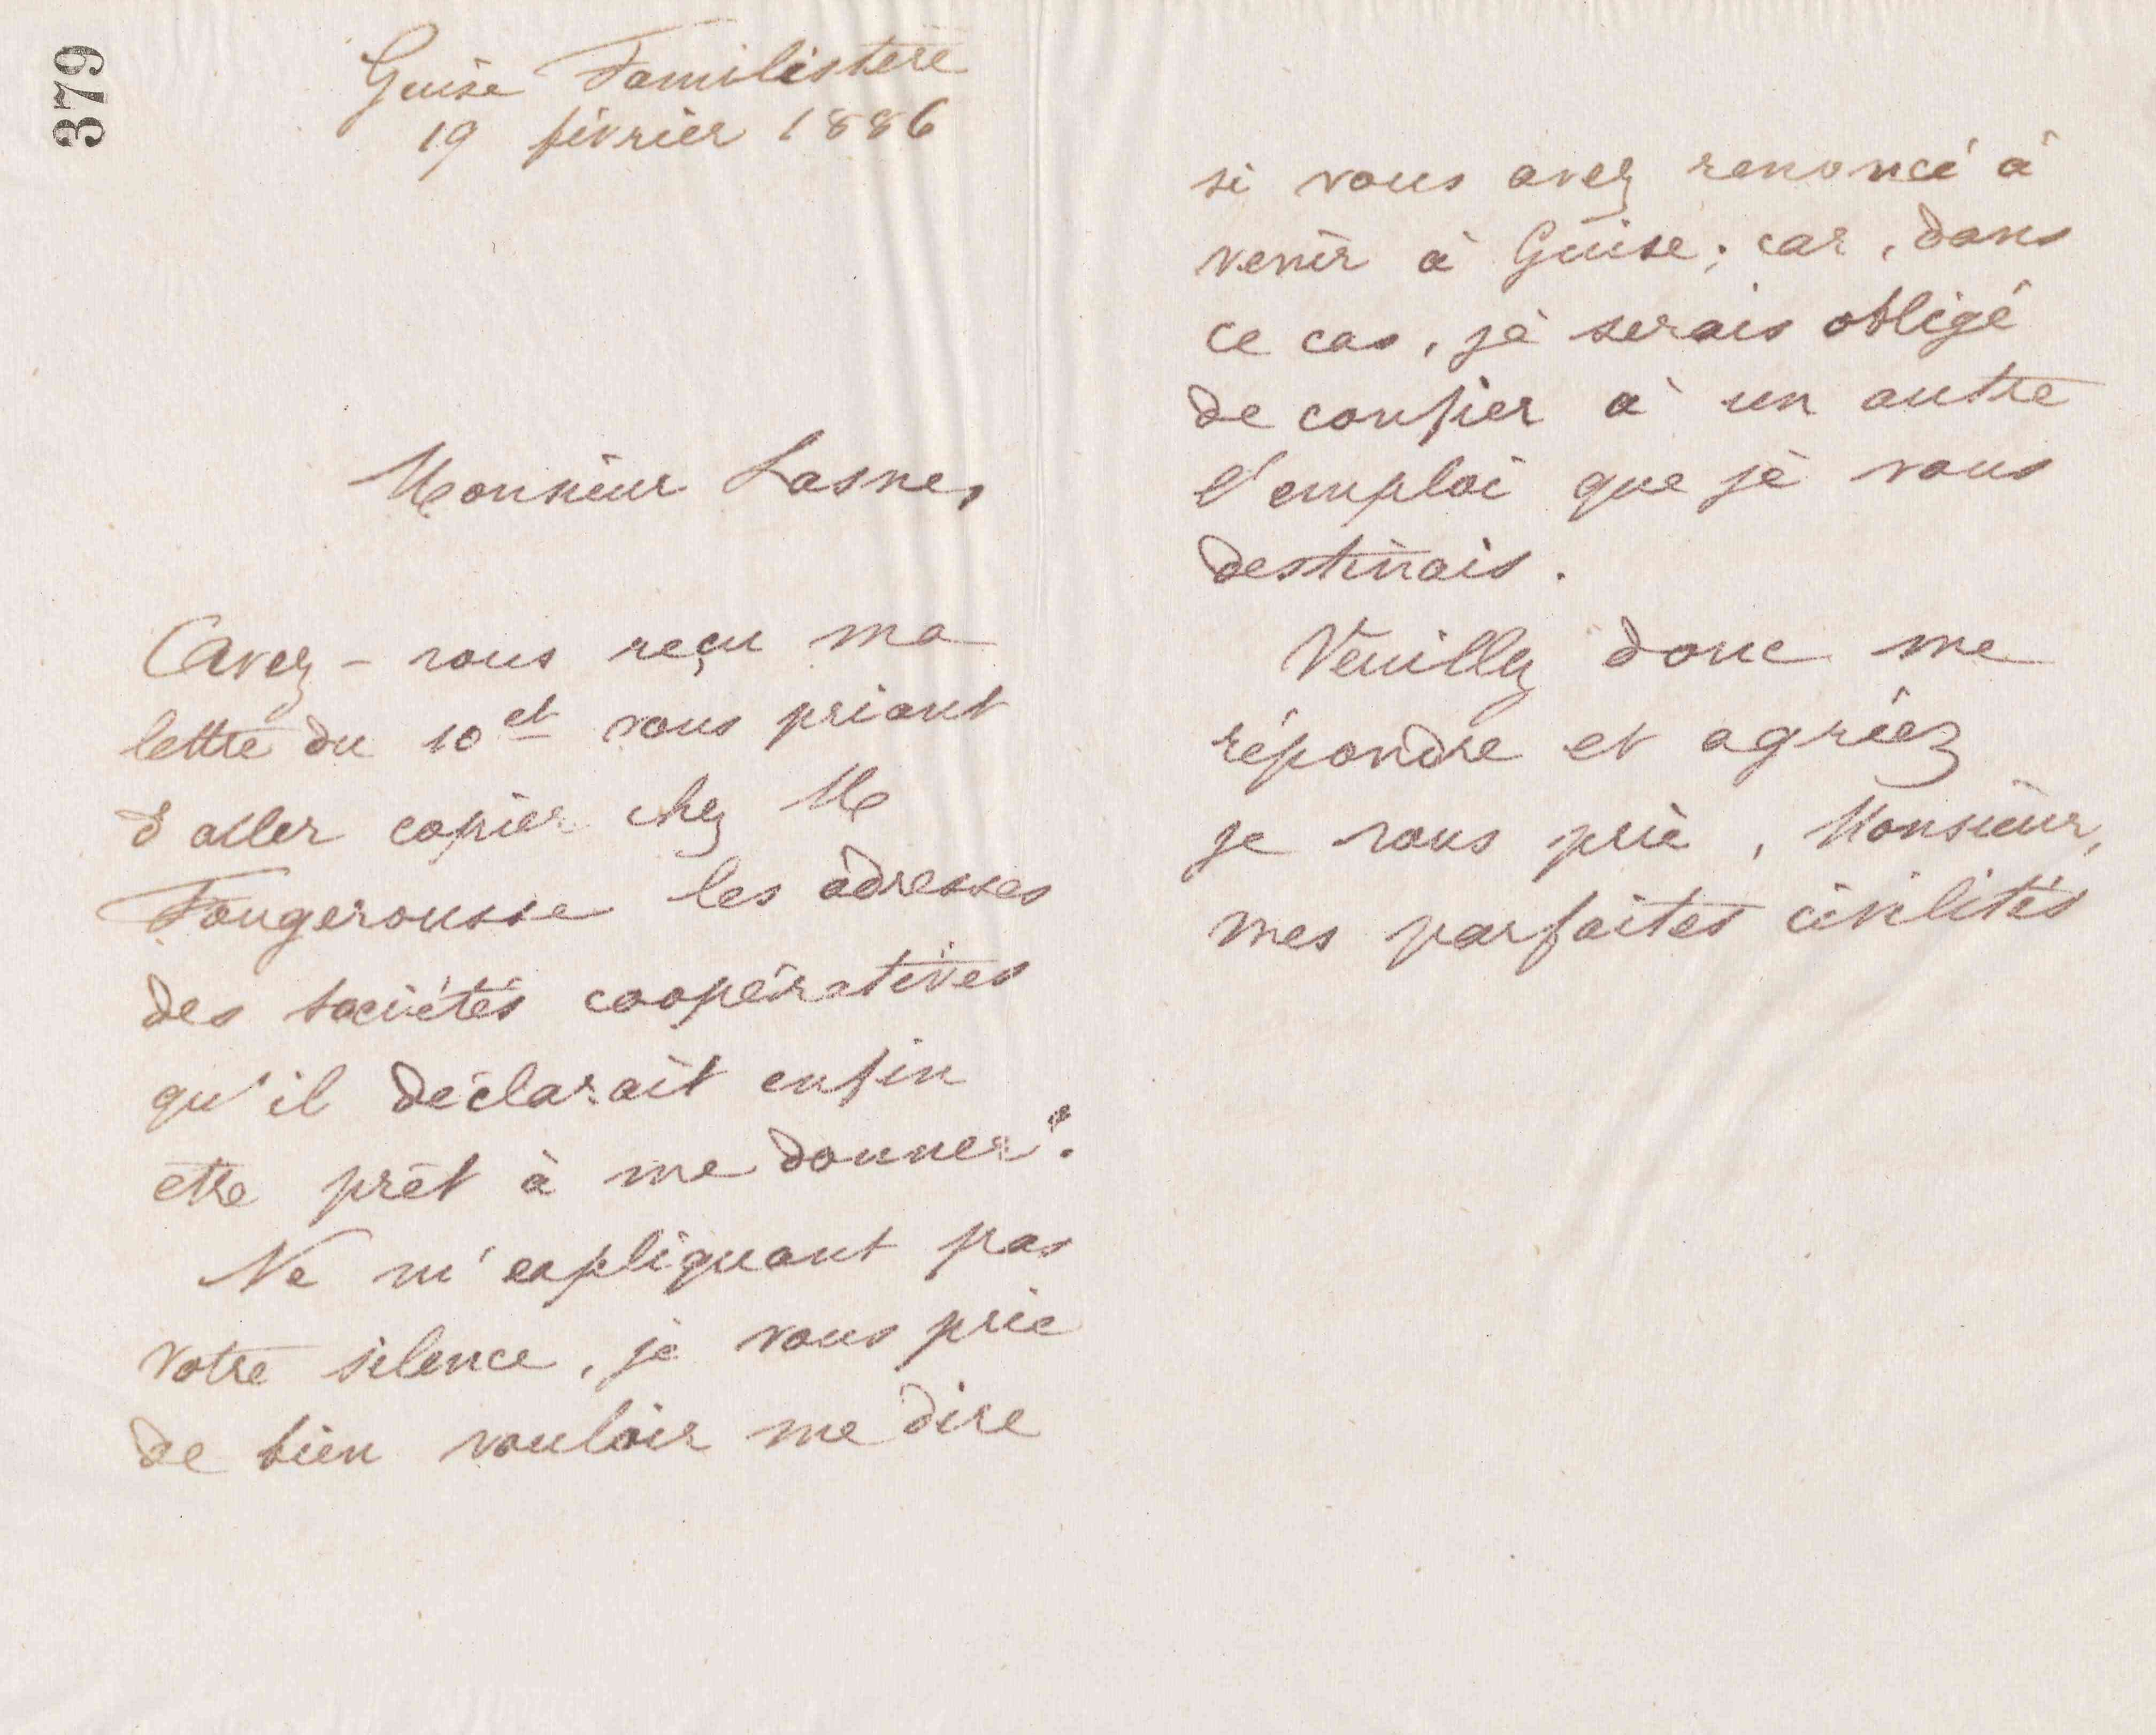 379
Guise Familistère
19 février 1886
Monsieur Lasne,
Avez-vous reçu ma
lettre du 10 ct vous priant
d'aller copier chez M
Fougerousse les adresses
des sociétés coopératives
qu'il déclarait enfin
etre prêt à me donner?
Ne m'expliquant pas
votre silence, je vous prie
de bien vouloir me dire
si vous avez renoncé à
venir à Guise; car, dans
ce cas, je serais obligé
de confier à un autre
l'emploi que je vous
destinais.
Veuillez donc me
répondre et agréez
je vous prie, Monsieur,
mes parfaites civilités